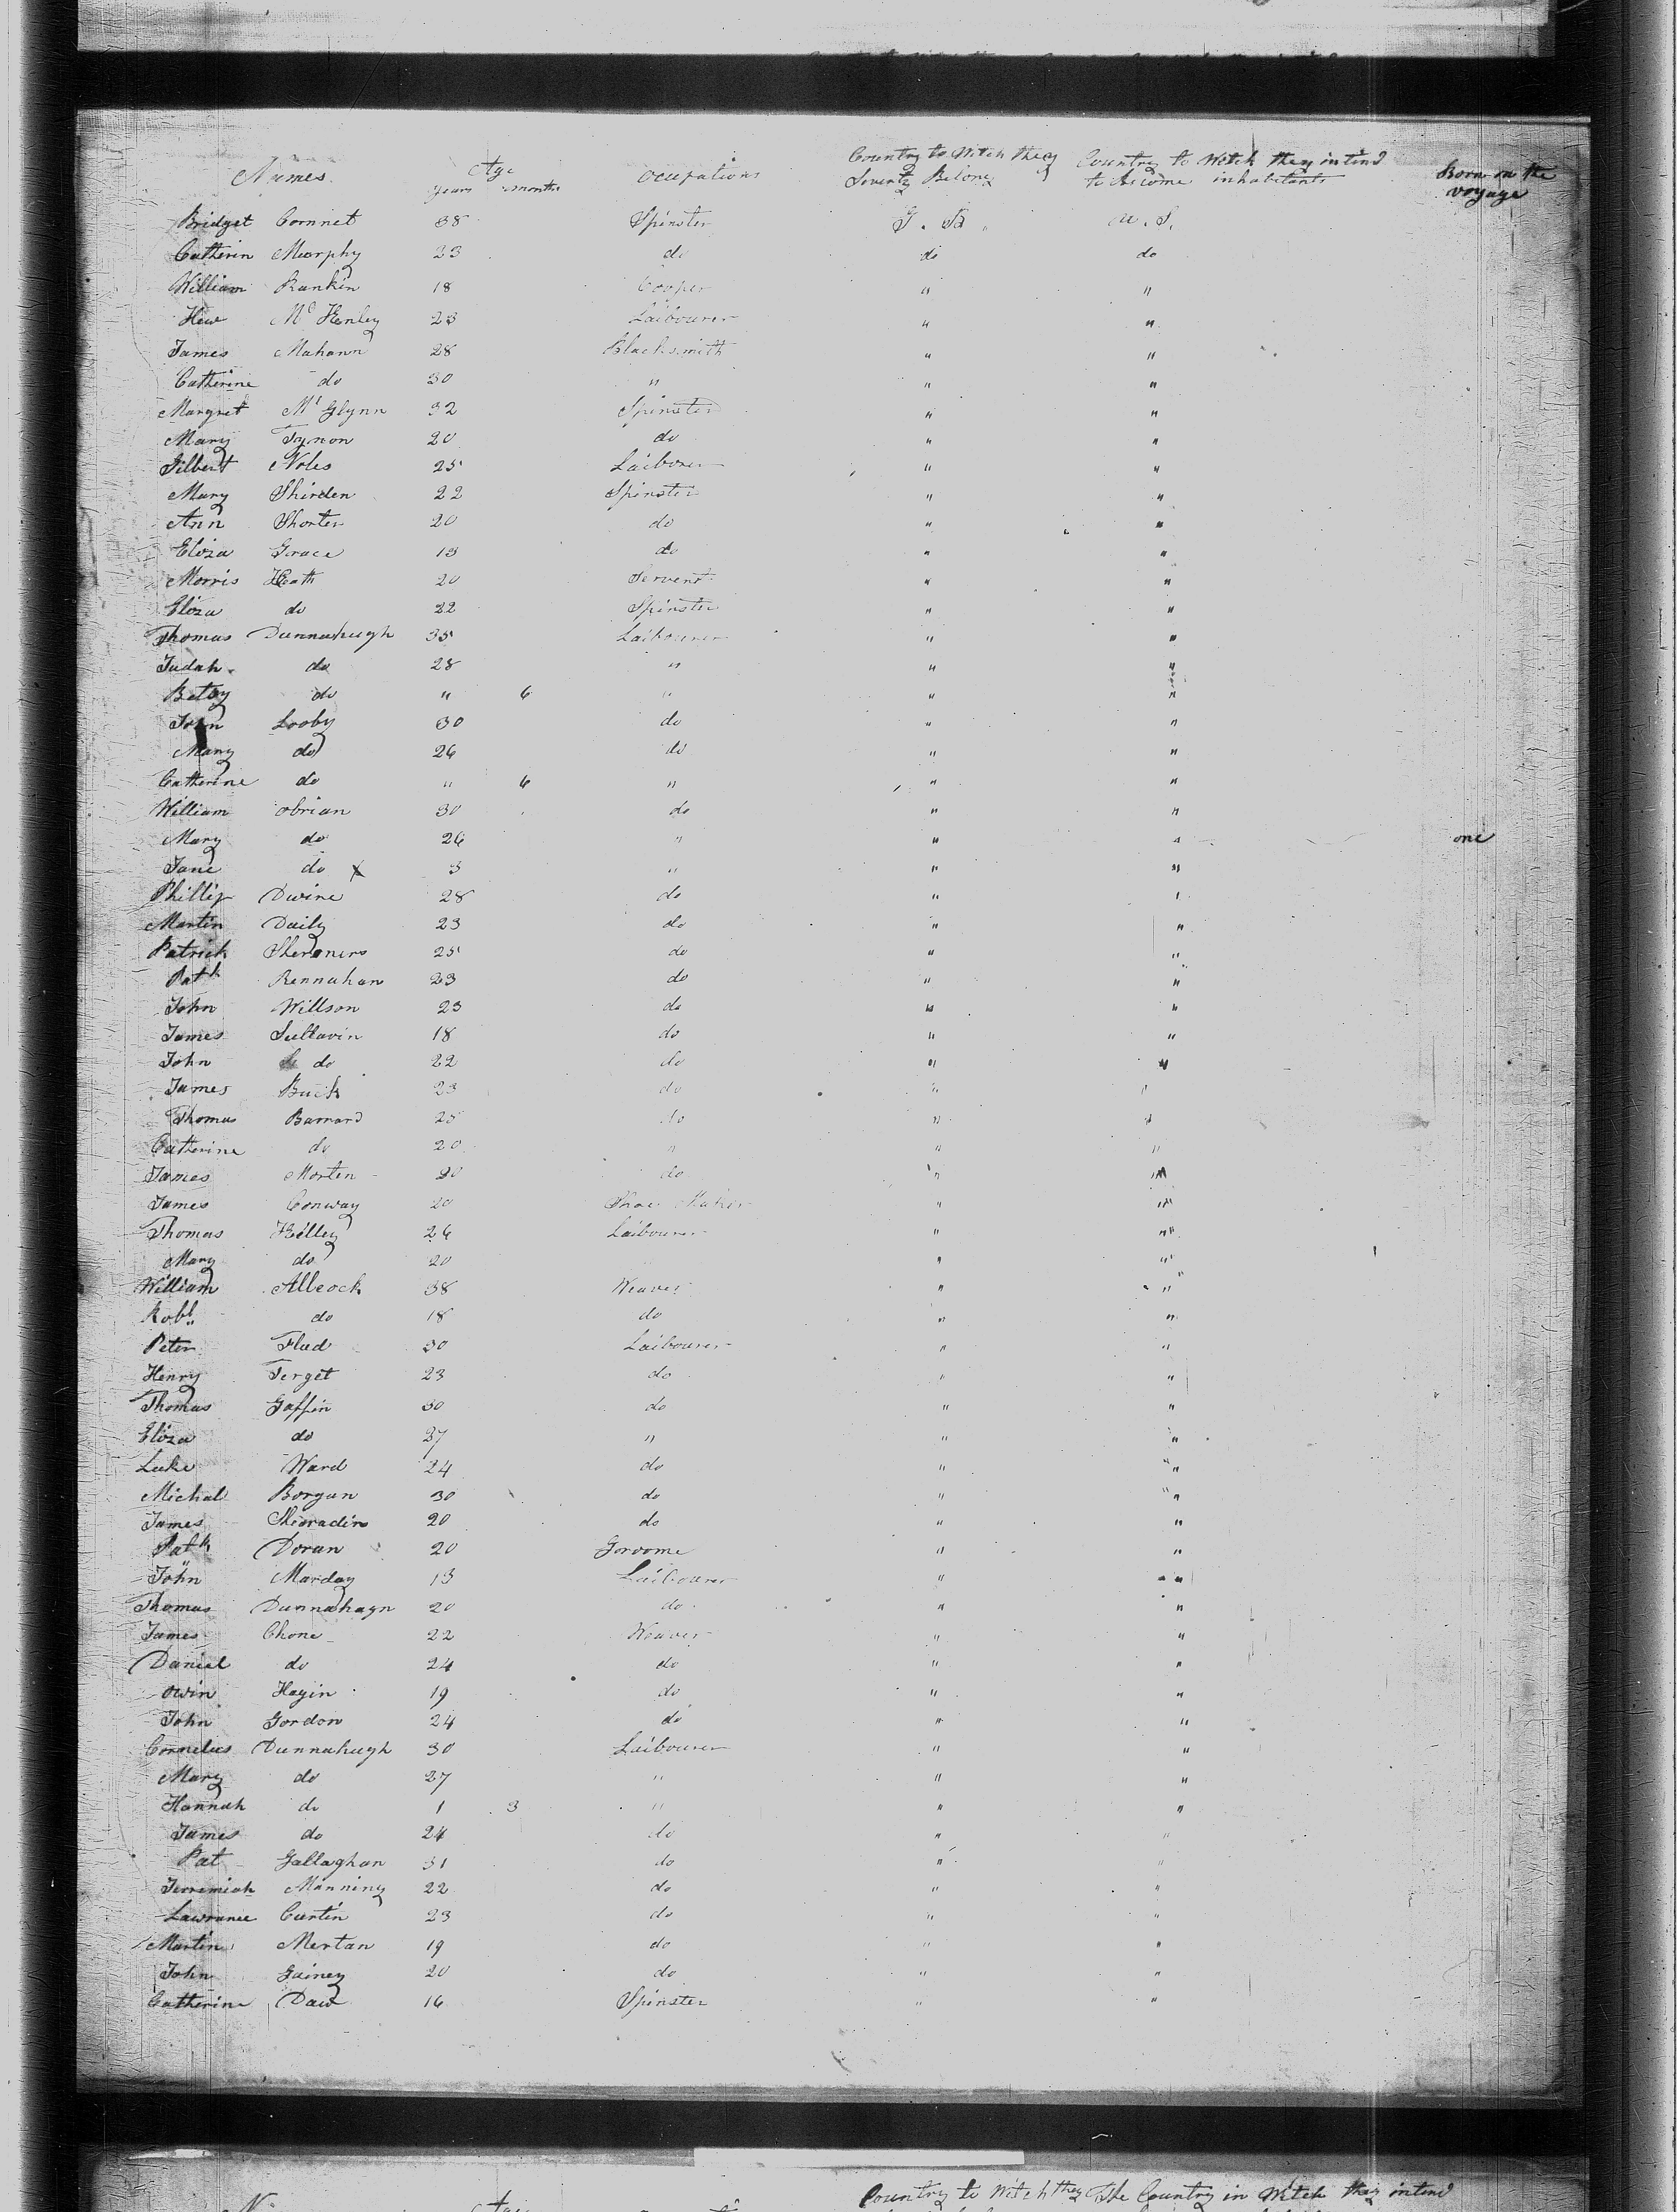 Names Age years months occupations Country to Witch they Severly Belong Country to Witch they intend to Become inhabitants Born on the voyage
Bridget Cornnet 38 Spinster G. B. U. S.
Catherin Murphy 23 do do do
William Rankin 18 Cooper " "
Hew Mc Henley 23 Laibourer " "
James Mahann 28 Blacksmith " "
Catherine do 30 " " "
Margret Mc Glynn 32 Spinster " "
Mary Tynon 20 do " "
Gilbert Noles 25 Laiborer " "
Mary Shirden 22 Spinster " "
Ann Shorter 20 do " "
Eliza Grace 13 do " "
Morris Heath 20 Servent " "
Eliza do 22 Spinster " "
Thomas Dunnahugh 35 Laibourer " "
Judah do 28 " " "
Betsy do " 6 " " "
John Looby 30 do " "
Mary do 26 do " "
Catherine do " 6 " " "
William obrian 30 do " "
Mary do 26 " " " one
Jane do x 3 " " "
Phillip Dwine 28 do " "
Martin Daily 23 do " "
Patrick 25 do " "
Patk Rennahan 23 do " "
John Willson 23 do " "
James Sullavin 18 do " "
John do 22 do " "
James Buck 23 do " "
Thomas Barnard 25 do " "
Catherine do 20 " " "
James Morten 20 do " "
James Conway 20 Shoe Maker " "
Thomas Killey 26 Laibourer " "
Mary do 20 " "
William Allcock 38 Weaver " "
Robt do 18 do " "
Peter Flud 30 Laibourer " "
Henry Terget 23 do " "
Thomas Gaffin 30 do " "
Eliza do 27 " " "
Luke Ward 24 do " "
Michal Borgan 30 do " "
James Sheradin 20 do " "
Patk Doran 20 Groome " "
John Marday 13 Laibourer " "
Thomas Dunnahagn 20 do " "
James Chone 22 Weaver " "
Daniel do 24 do " "
Owin Hagin 19 do " "
John Gordon 24 do " "
Cornelius Dunnahugh 30 Laibourer " "
Mary do 27 " " "
Hannah do 1 3 " " "
James do 24 do " "
Pat Gallaghan 31 do " "
Jerremiah Manning 22 do " "
Lawrance Curtin 23 do " "
Martin Mertan 19 do " "
John Gainey 20 do " "
Catherine Daw 16 Spinster " "
Country to Witch they The Country in Witch they intend